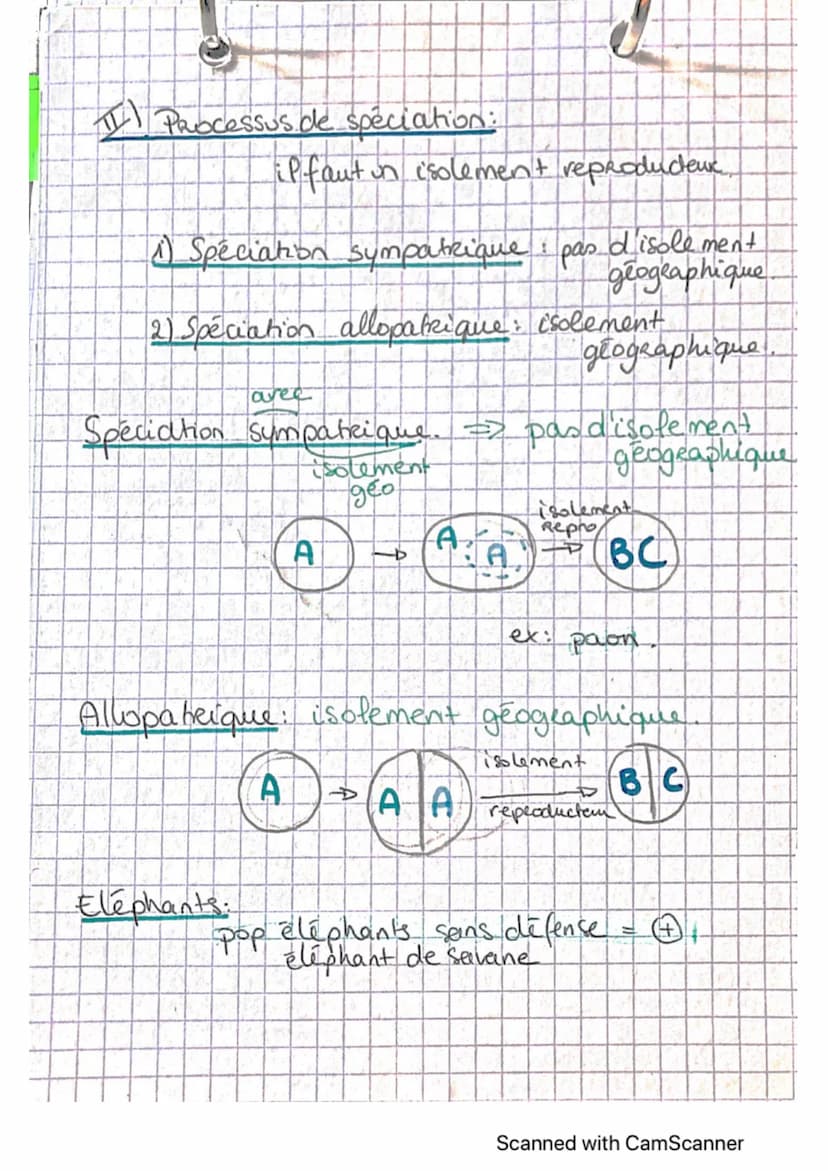 II) Processus de spéciation:
il faut un isolement reproducteur.
1) Spéciation sympatrique : pas d'isolement
géographique.
2) Spéciation allopatrique : isolement
géographique.
avec
Spéciation sympatrique. => pas d'isolement
géographique
isolement
géo
isolement
Repro
A → A A → BC
ex: paon.
Allopatrique: isolement géographique.
isolement
A → A A → B C
reproducteur
Eléphants:
pop éléphants sans défense = +
éléphant de Savane
Scanned with CamScanner